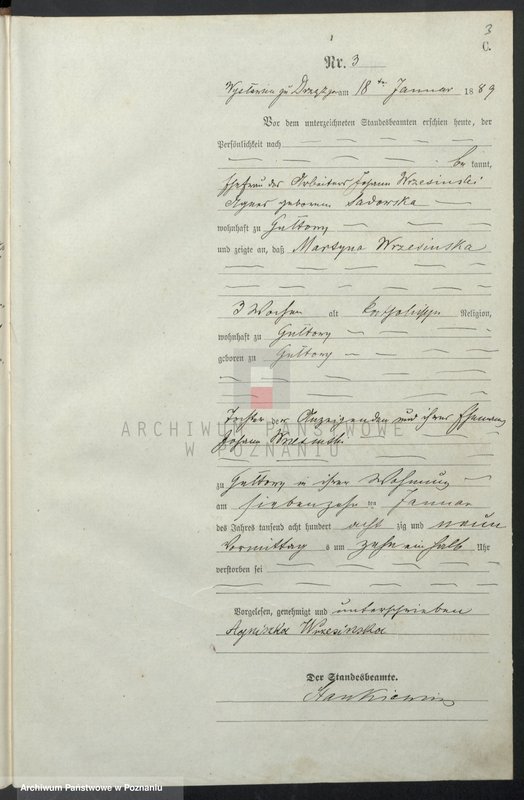 3
C.
Nr. 3
am 18 ten Januar 1889
Vor dem unterzeichneten Standesbeamten erschien heute, der
Persönlichkeit nach
be kannt,
Ehefrau des Arbeiters Johann Wrzesinski
Agnes geborene Sadorska
wohnhaft zu Gultowy
und zeigte an, daß Martyna Wrzesinska
3 Wochen alt katholischer Religion,
wohnhaft zu Gultowy
geboren zu Gultowy
Tochter der Anzeigenden und ihres Ehemannes
Johann Wrzesinski
ARCHIWUM PAŃSTWOWE
W POZNANIU
zu Gultowy in ihrer Wohnung
am siebenzehn ten Januar
des Jahres tausend acht hundert acht zig und neun
Vormittag s um zehn ein halb Uhr
verstorben sei
Vorgelesen, genehmigt und unterschrieben
Agniszka Wrzesinska
Der Standesbeamte.
Stankiewicz
Archiwum Państwowe w Poznaniu